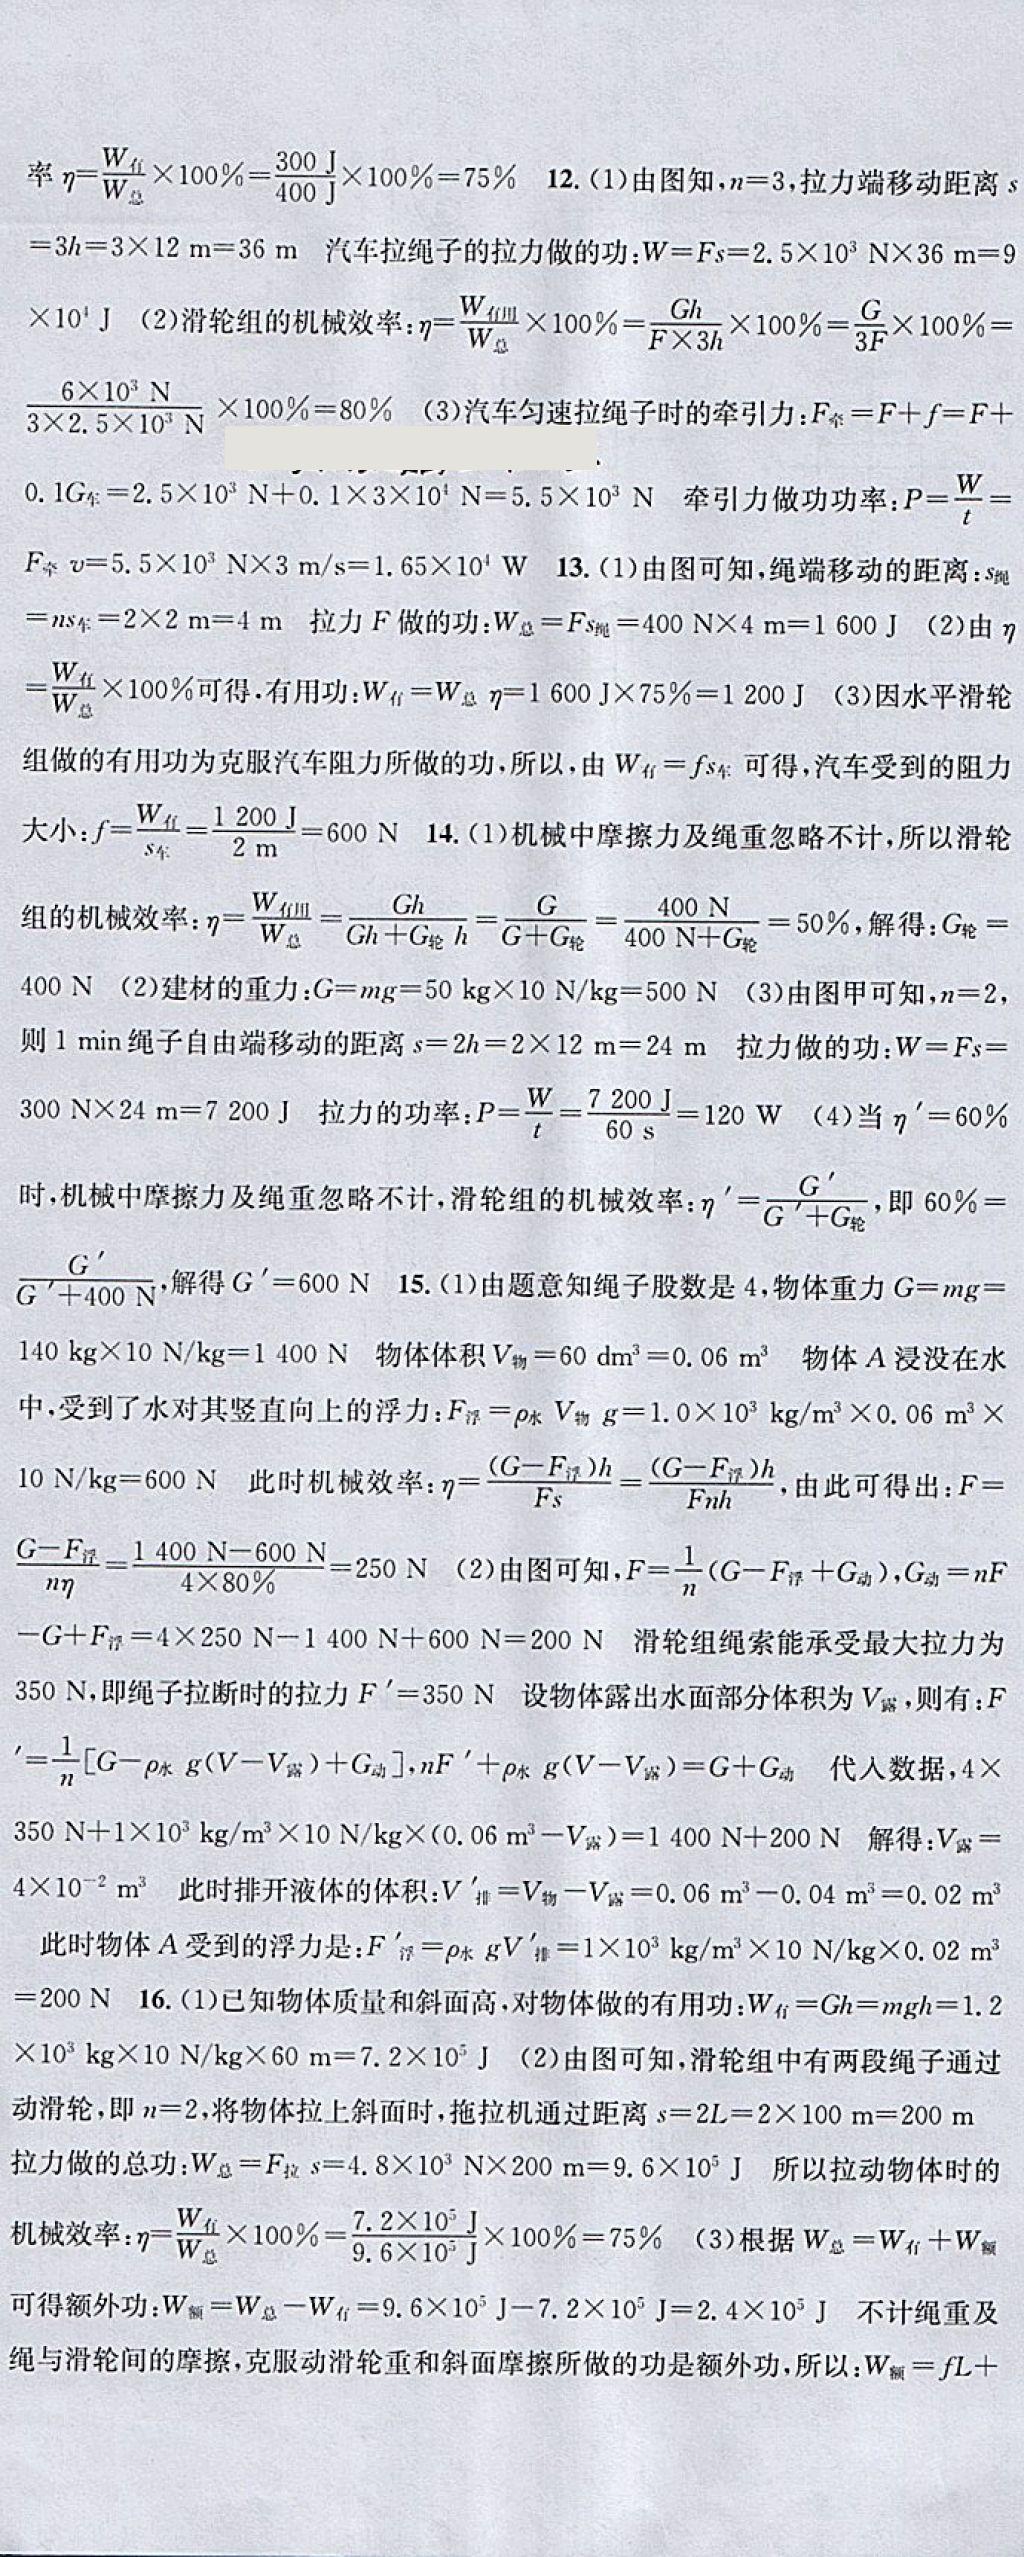 率 η=W有/W总×100%=300 J/400 J×100%=75% 12.(1)由图知,n=3,拉力端移动距离 s
=3h=3×12 m=36 m 汽车拉绳子的拉力做的功:W=Fs=2.5×10³ N×36 m=9
×10⁴ J (2)滑轮组的机械效率:η=W有用/W总×100%=Gh/F×3h×100%=G/3F×100%=
6×10³ N/3×2.5×10³ N ×100%=80% (3)汽车匀速拉绳子时的牵引力:F牵=F+f=F+
0.1G车=2.5×10³ N+0.1×3×10⁴ N=5.5×10³ N 牵引力做功功率:P=W/t=
F牵 v=5.5×10³ N×3 m/s=1.65×10⁴ W 13.(1)由图可知,绳端移动的距离:s绳
=ns车=2×2 m=4 m 拉力 F 做的功:W总=Fs绳=400 N×4 m=1 600 J (2)由 η
=W有/W总×100%可得.有用功:W有=W总 η=1 600 J×75%=1 200 J (3)因水平滑轮
组做的有用功为克服汽车阻力所做的功,所以,由 W有=fs车 可得,汽车受到的阻力
大小:f=W有/s车=1 200 J/2 m=600 N 14.(1)机械中摩擦力及绳重忽略不计,所以滑轮
组的机械效率:η=W有用/W总=Gh/Gh+G轮 h=G/G+G轮=400 N/400 N+G轮=50%,解得:G轮=
400 N (2)建材的重力:G=mg=50 kg×10 N/kg=500 N (3)由图甲可知,n=2,
则 1 min 绳子自由端移动的距离 s=2h=2×12 m=24 m 拉力做的功:W=Fs=
300 N×24 m=7 200 J 拉力的功率:P=W/t=7 200 J/60 s=120 W (4)当 η′=60%
时,机械中摩擦力及绳重忽略不计,滑轮组的机械效率:η′=G′/G′+G轮,即 60%=
G′/G′+400 N,解得 G′=600 N 15.(1)由题意知绳子股数是 4,物体重力 G=mg=
140 kg×10 N/kg=1 400 N 物体体积 V物=60 dm³=0.06 m³ 物体 A 浸没在水
中,受到了水对其竖直向上的浮力:F浮=ρ水 V物 g=1.0×10³ kg/m³×0.06 m³×
10 N/kg=600 N 此时机械效率:η=(G-F浮)h/Fs=(G-F浮)h/Fnh,由此可得出:F=
G-F浮/nη=1 400 N-600 N/4×80%=250 N (2)由图可知,F=1/n(G-F浮+G动),G动=nF
-G+F浮=4×250 N-1 400 N+600 N=200 N 滑轮组绳索能承受最大拉力为
350 N,即绳子拉断时的拉力 F′=350 N 设物体露出水面部分体积为 V露,则有:F
′=1/n[G-ρ水 g(V-V露)+G动],nF′+ρ水 g(V-V露)=G+G动 代入数据,4×
350 N+1×10³ kg/m³×10 N/kg×(0.06 m³-V露)=1 400 N+200 N 解得:V露=
4×10⁻² m³ 此时排开液体的体积:V′排=V物-V露=0.06 m³-0.04 m³=0.02 m³
此时物体 A 受到的浮力是:F′浮=ρ水 gV′排=1×10³ kg/m³×10 N/kg×0.02 m³
=200 N 16.(1)已知物体质量和斜面高,对物体做的有用功:W有=Gh=mgh=1.2
×10³ kg×10 N/kg×60 m=7.2×10⁵ J (2)由图可知,滑轮组中有两段绳子通过
动滑轮,即 n=2,将物体拉上斜面时,拖拉机通过距离 s=2L=2×100 m=200 m
拉力做的总功:W总=F拉 s=4.8×10³ N×200 m=9.6×10⁵ J 所以拉动物体时的
机械效率:η=W有/W总×100%=7.2×10⁵ J/9.6×10⁵ J×100%=75% (3)根据 W总=W有+W额
可得额外功:W额=W总-W有=9.6×10⁵ J-7.2×10⁵ J=2.4×10⁵ J 不计绳重及
绳与滑轮间的摩擦,克服动滑轮重和斜面摩擦所做的功是额外功,所以:W额=fL+